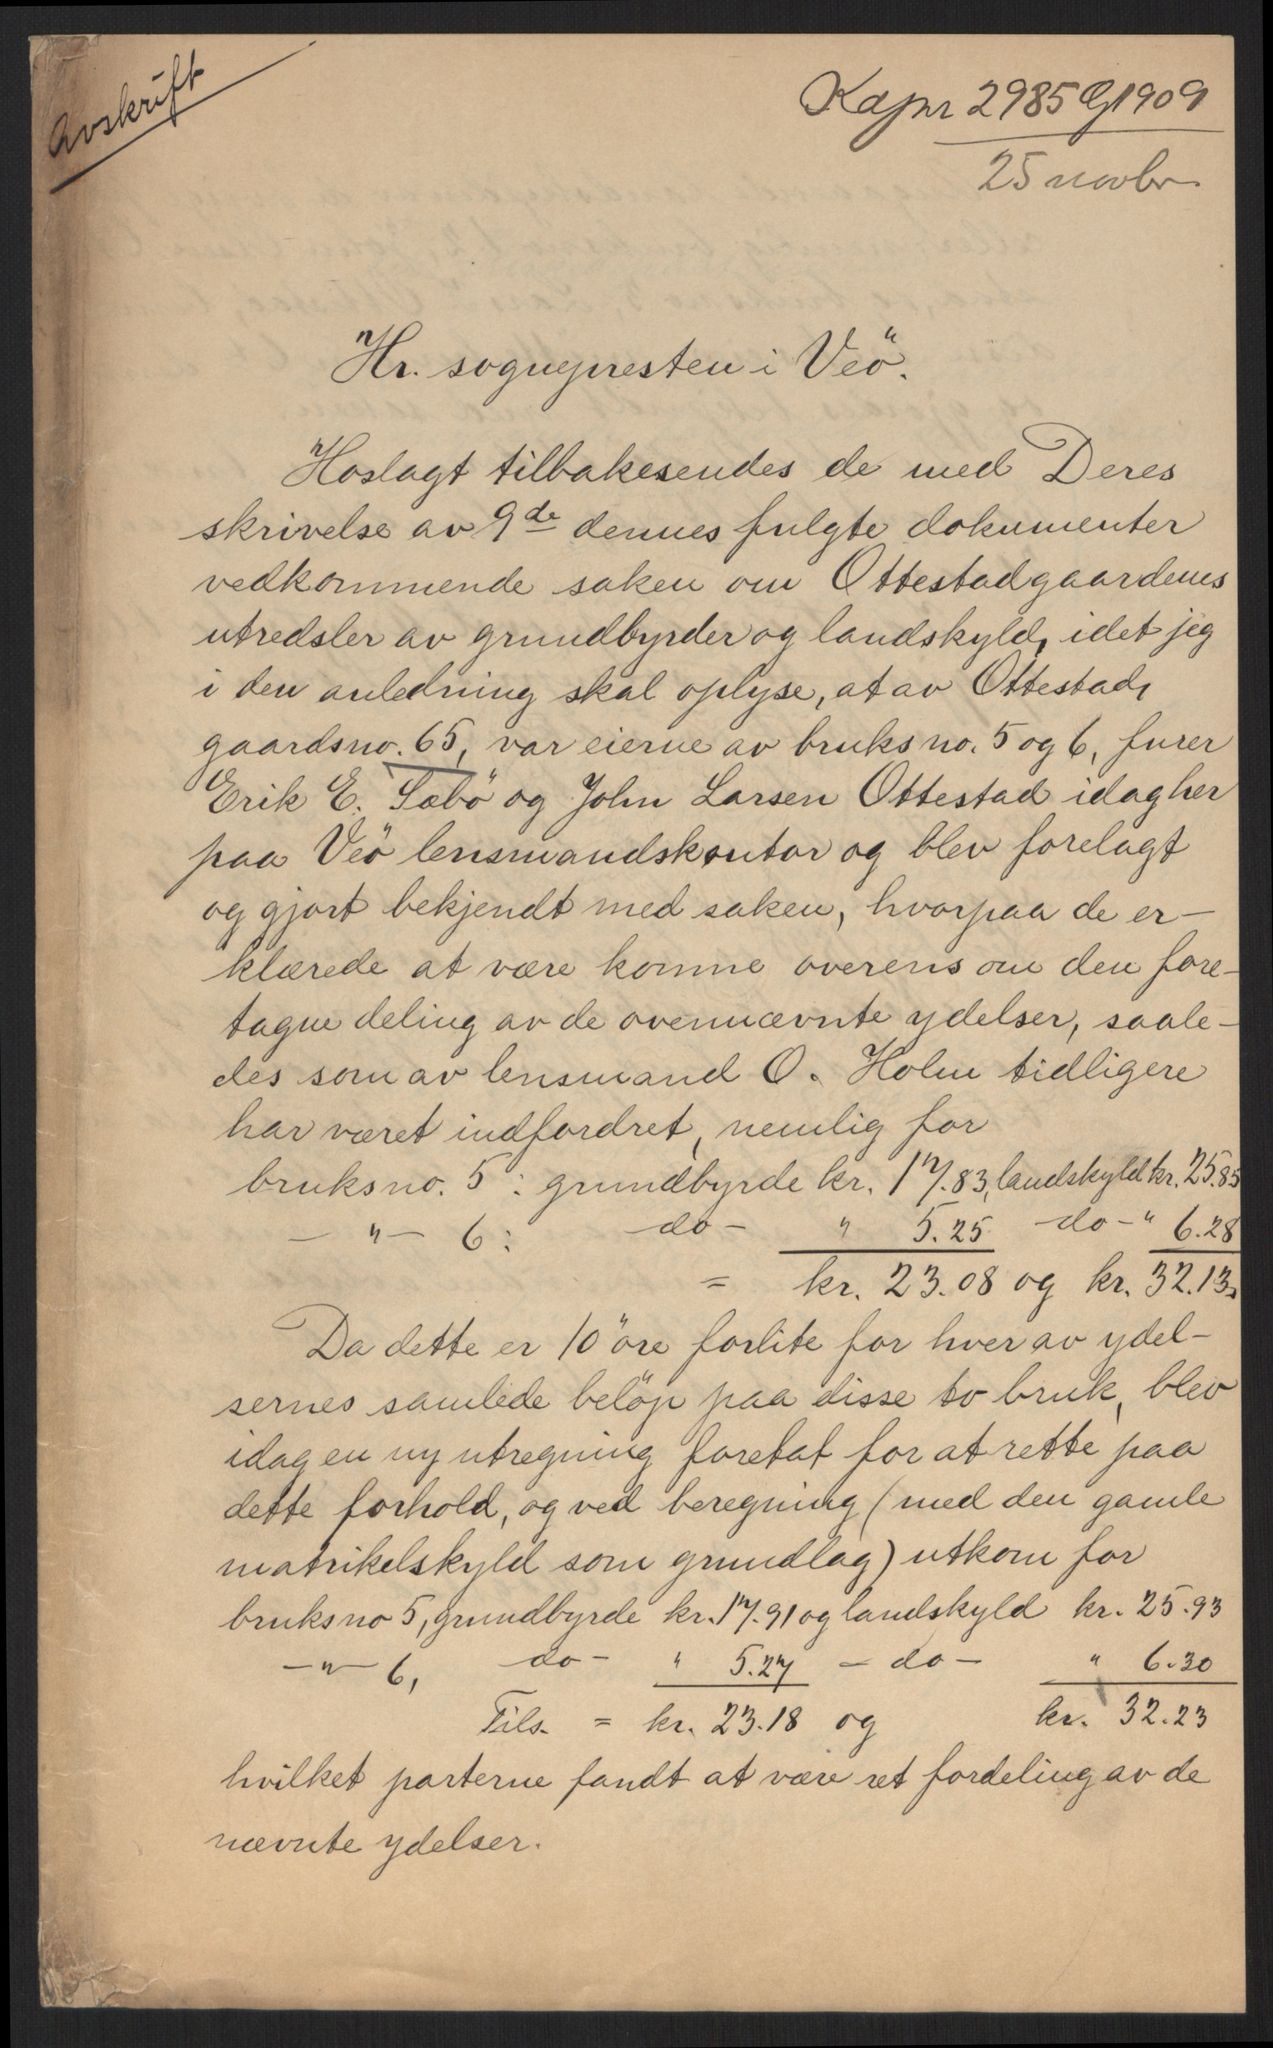 Avskrift
Kapnr 2985 G 1909
25 novbr.
Hr. sognepresten i Veö.
Hoslagt tilbakesendes de med Deres
skrivelse av 9de dennes fulgte dokumenter
vedkommende saken om Ottestadgaardenes
utredsler av grundbyrder og landskyld, idet jeg
i den anledning skal oplyse, at av Ottestad,
gaardsno. 65, var eierne av bruksno. 5 og 6, furer
Erik E. Sæbö og John Larsen Ottestad idag her
paa Veö lensmandskontor og blev forelagt
og gjort bekjendt med saken, hvorpaa de er-
klærede at være komne overens om den fore-
tagne deling av de ovennævnte ydelser, saale-
des som av lensmand O. Holm tidligere
har været indfordret, nemlig for
bruksno. 5: grundbyrde kr. 17.83, landskyld kr. 25.85
— " — 6: do — " 5.25 do — " 6.28
= kr. 23.08 og kr. 32.13.
Da dette er 10 öre forlite for hver av ydel-
sernes samlede belöp paa disse to bruk, blev
idag en ny utregning foretat for at rette paa
dette forhold, og ved beregning (med den gamle
matrikelskyld som grundlag) utkom for
bruksno 5, grundbyrde kr. 17.91 og landskyld kr. 25.93
— " — 6, do — " 5.27 — do — " 6.30
Tils. = kr. 23.18 og kr. 32.23
hvilket parterne fandt at være ret fordeling av de
nævnte ydelser.